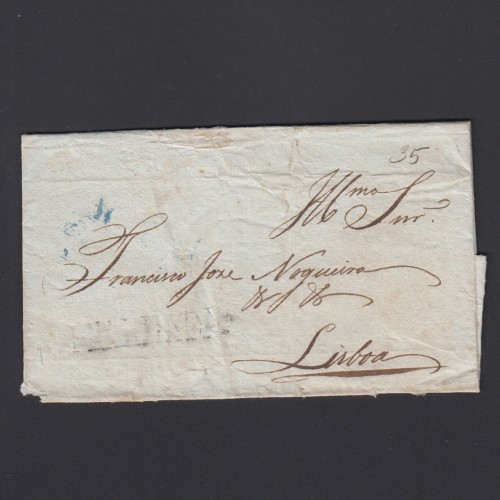 35
Illmo Snr.
Francisco Joze Nogueira
&c &c
Lisboa